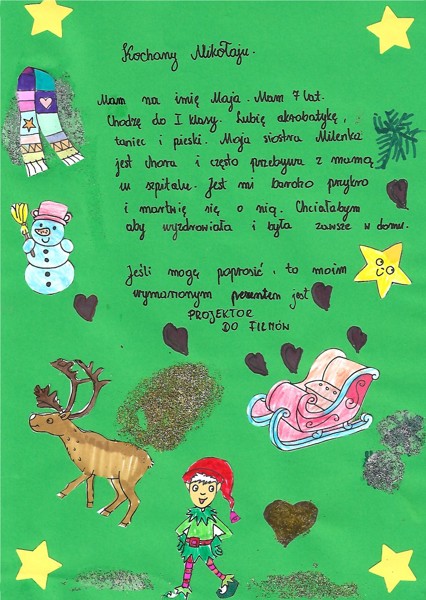 Kochany Mikołaju.
Mam na imię Maja. Mam 7 lat.
Chodzę do I klasy. Lubię akrobatykę,
taniec i pieski. Moja siostra Milenka
jest chora i często przebywa z mamą
w szpitalu. Jest mi bardzo przykro
i martwię się o nią. Chciałabym
aby wyzdrowiała i była zawsze w domu.
Jeśli mogę poprosić, to moim
wymarzonym prezentem jest
PROJEKTOR
DO FILMÓW